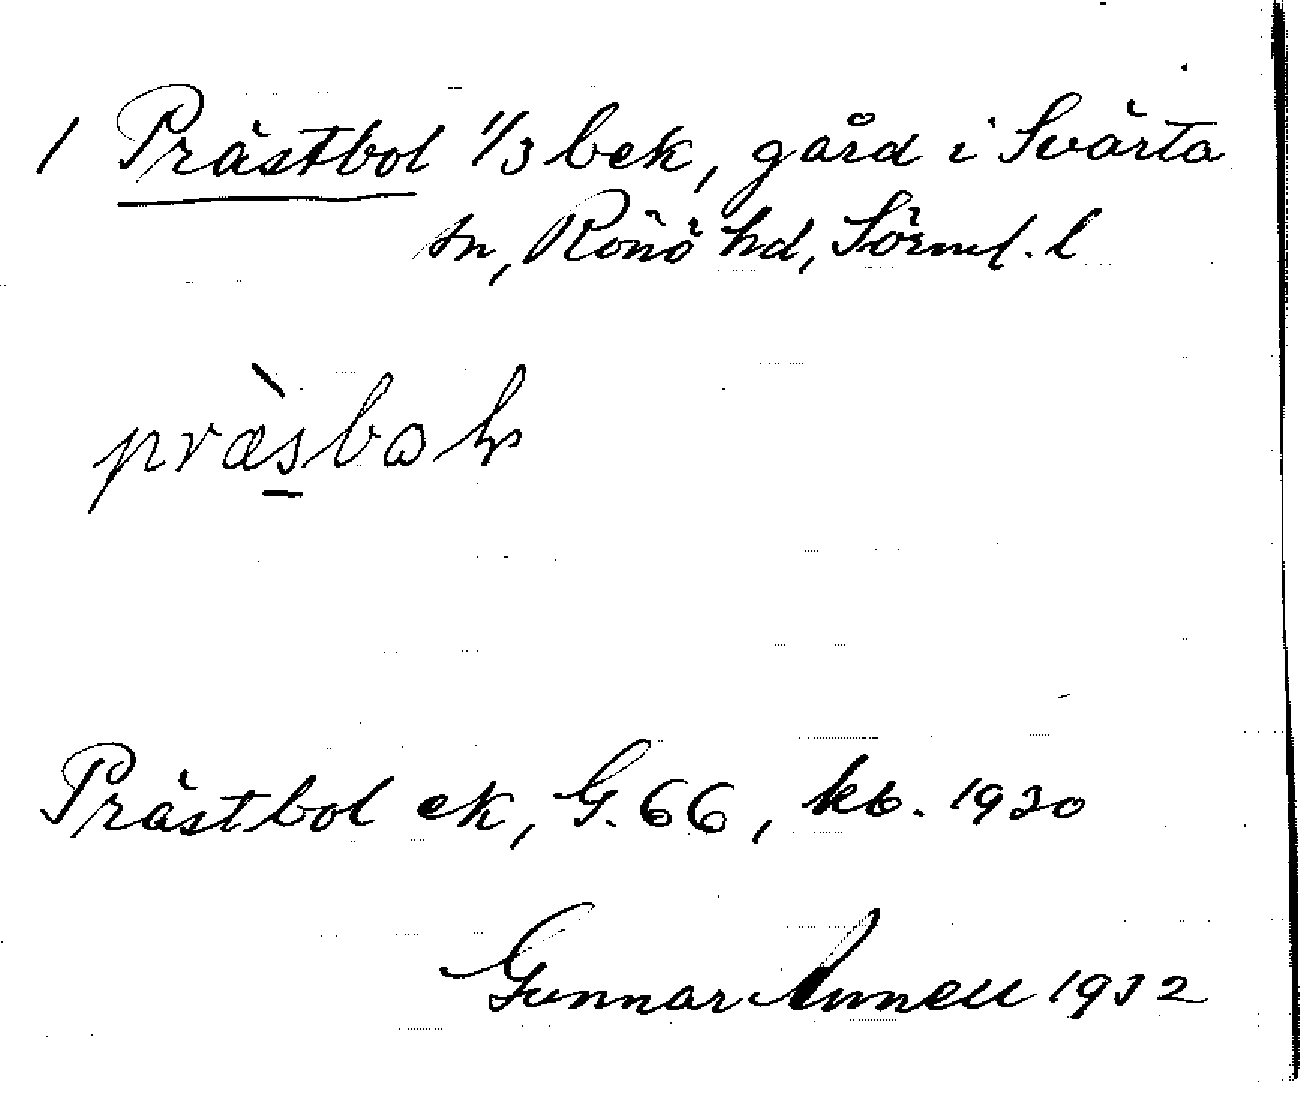 1 Prästbol 1/3 bek, gård i Svärta
sn, Rönö hd, Sörml. l
præ̀sboḷ
Prästbol ek, G. 66, kb. 1930
Gunnar Annell 1932